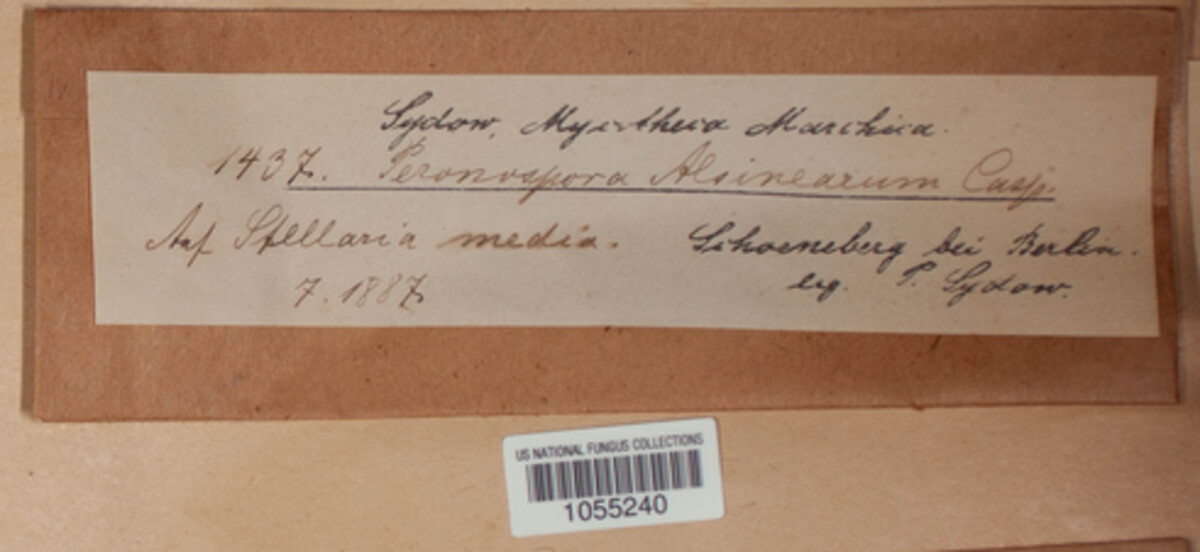 Sydow, Mycotheca Marchica.
1437. Peronospora Alsinearum Casp.
Auf Stellaria media. Schoeneberg bei Berlin.
7. 1887 leg. P. Sydow.
US NATIONAL FUNGUS COLLECTIONS
1055240